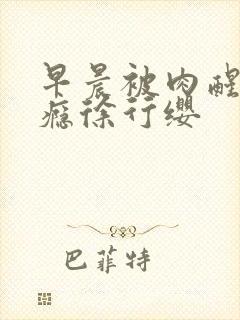 早晨被肉醒
瘾徐行缨
巴菲特